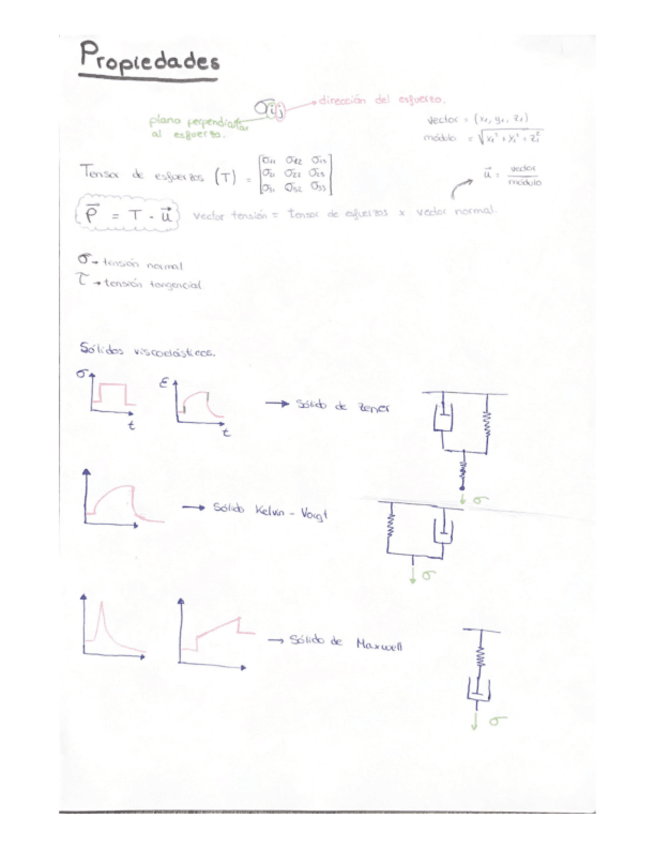 Propiedades
σij → dirección del esfuerzo.
plano perpendicular
al esfuerzo.
vector = (x₁, y₁, z₁)
módulo = √x₁² + y₁² + z₁²
Tensor de esfuerzos (T) = [σ₁₁ σ₁₂ σ₁₃
σ₂₁ σ₂₂ σ₂₃
σ₃₁ σ₃₂ σ₃₃]
u⃗ = vector
módulo
P⃗ = T · u⃗ vector tensión = tensor de esfuerzos x vector normal.
σ → tensión normal
τ → tensión tangencial
Sólidos viscoelásticos.
σ t ε t → Sólido de Zener
σ
→ Sólido Kelvin - Voigt
σ
→ Sólido de Maxwell
σ